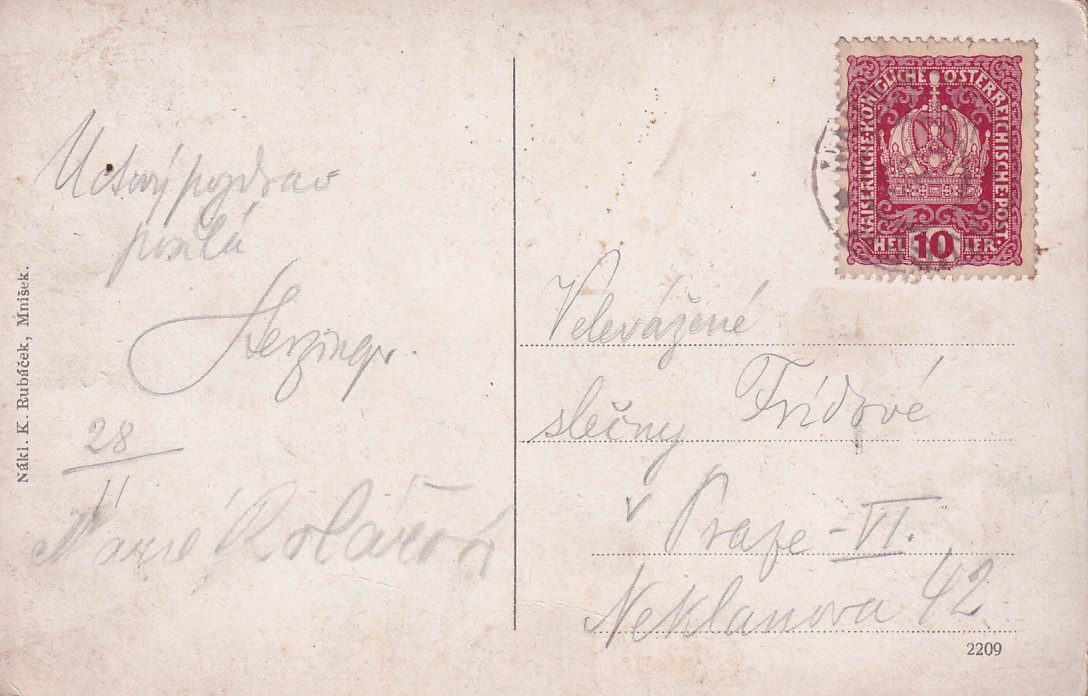 Uctivý pozdrav
posílá
Herzinger.
28
II
Marie Kolářová
Nákl. K. Rubáček, Mníšek.
KAISERLICHE·KÖNIGLICHE·ÖSTERREICHISCHE·POST·
HELLER·
10
Velevážené
slečny Frídové
v Praze - VI.
Neklanova 42
2209